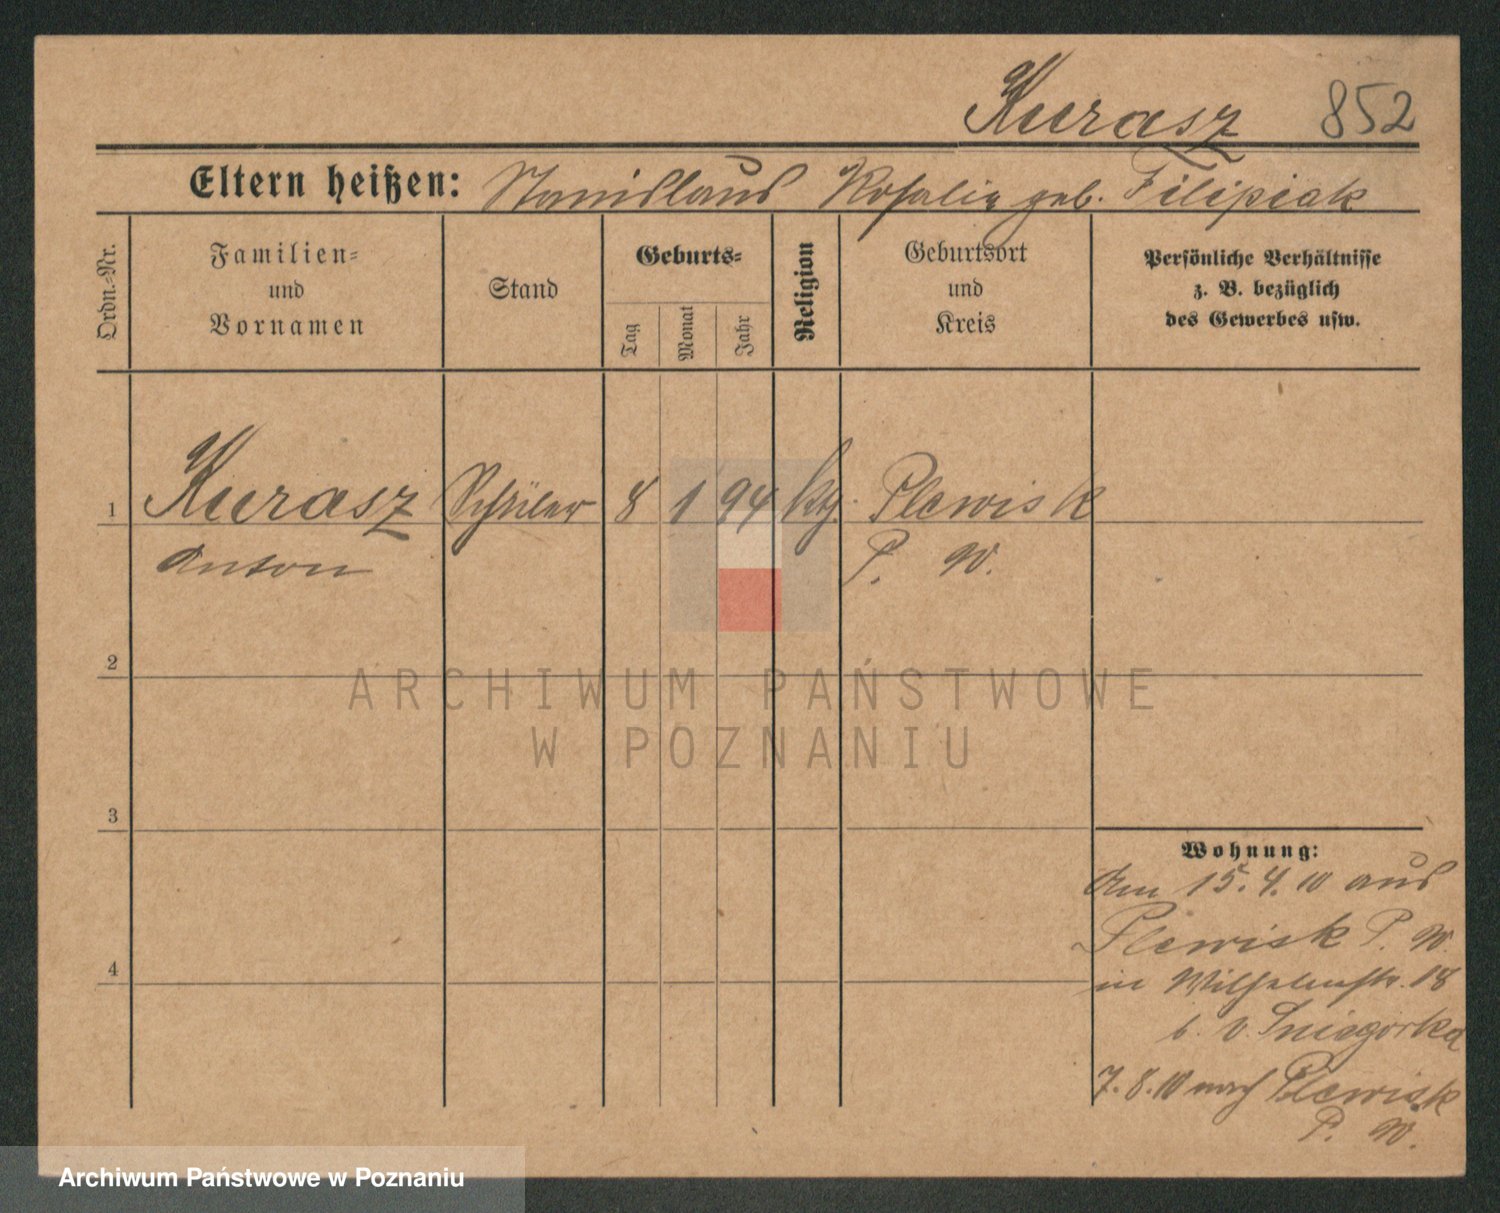 Kurasz 852
Eltern heißen: Stanislaus Rosalie geb. Filipiak
Ordn.-Nr.
Familien-
und
Vornamen
Stand
Geburts-
Tag
Monat
Jahr
Religion
Geburtsort
und
Kreis
Persönliche Verhältnisse
z. B. bezüglich
des Gewerbes usw.
1 Kurasz Schüler 8 1 94 kth. Plewisk
Anton P. W.
2
ARCHIWUM PAŃSTWOWE
W POZNANIU
3
Wohnung:
Am 15.4.10 aus
Plewisk P. W.
4
in Wilhelmstr. 18
b. v. Sniegocka
7.8.10 nach Plewisk
P. W.
Archiwum Państwowe w Poznaniu